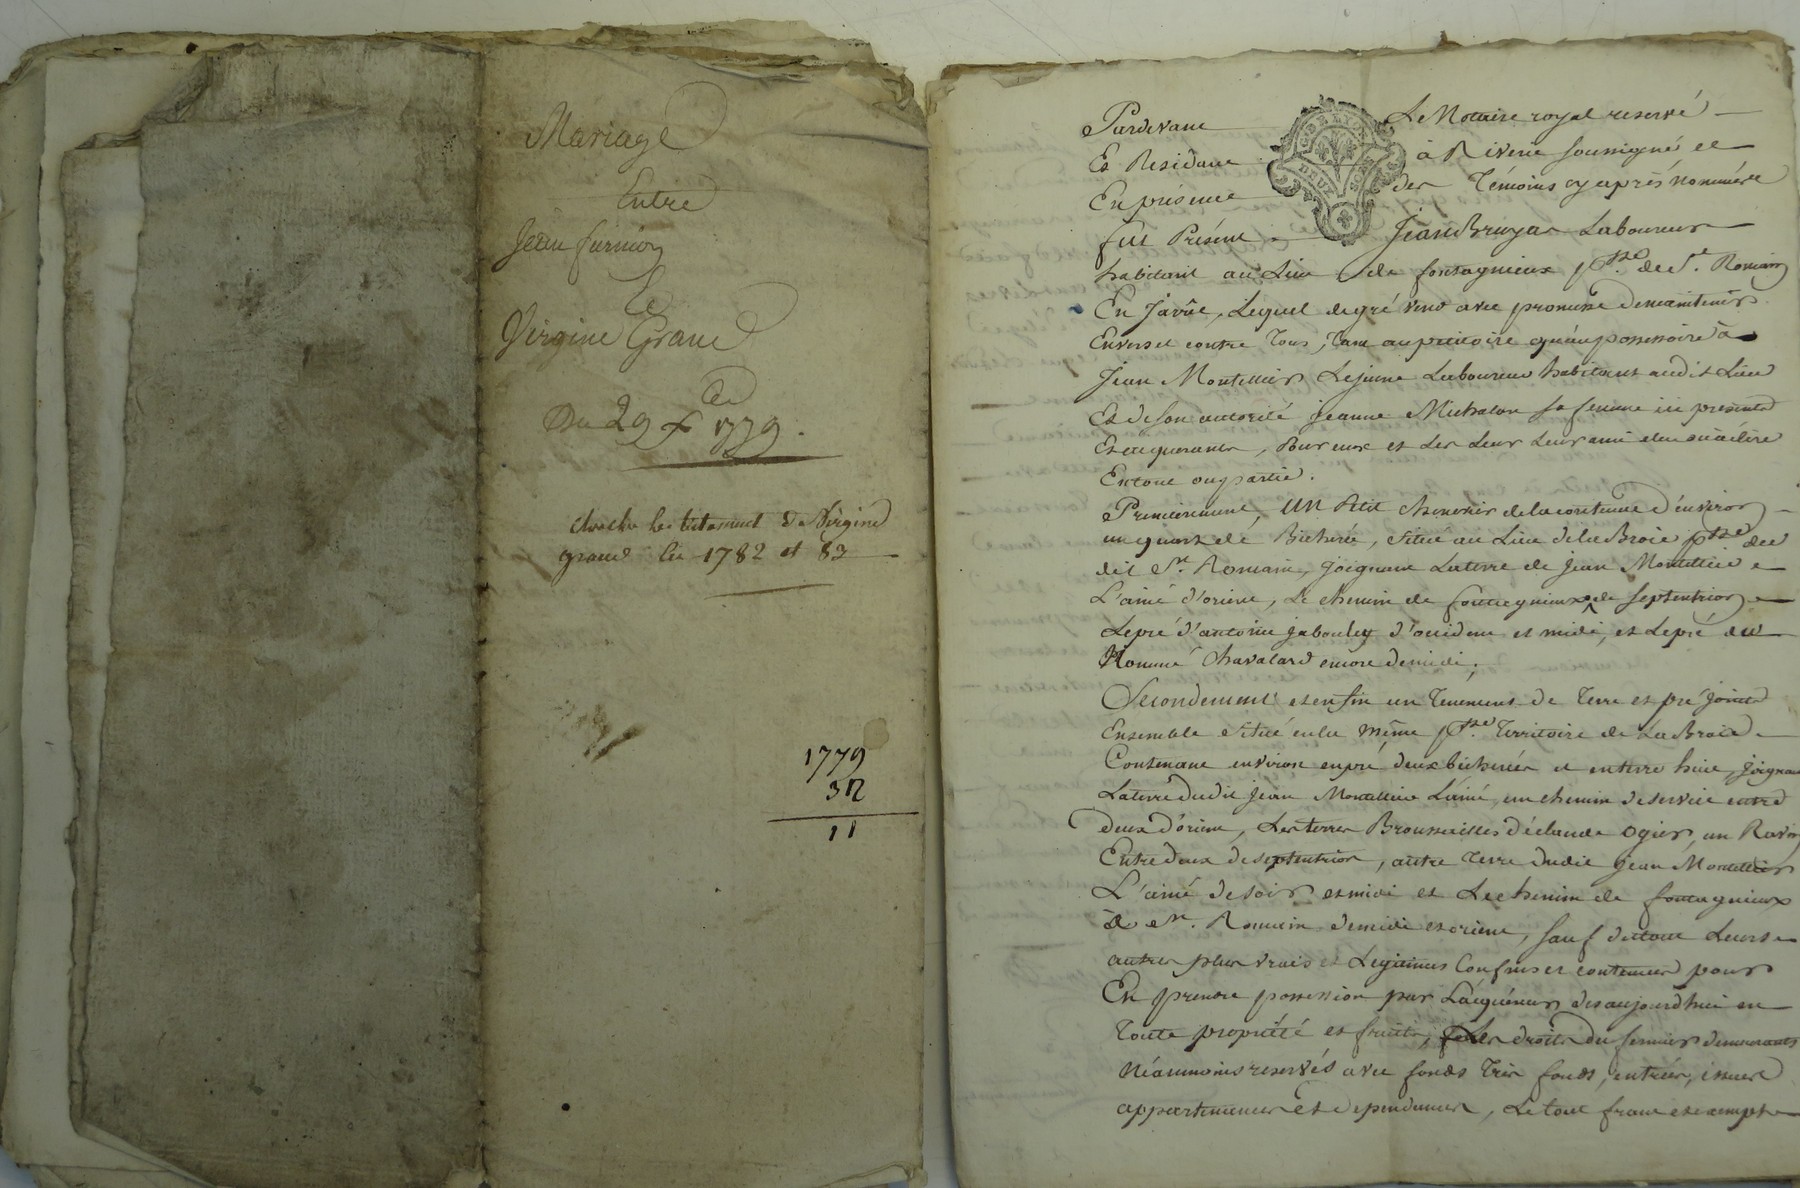 Mariage
Entre
Jean furnion
Et
Virgine Grand
Du 29 1779.
cherche le testament de Virgine
grand les 1782 et 83
1779
32
11
Pardevant Le Notaire royal reservé
Et Residant à Riverie soussigné et
En présence des Témoins cy après nommés
fut Présent Jean Bruyas Laboureur
habitant au Lieu de fontagnieux psse de St. Romain
En Jarêt, Lequel de gré vend avec promesse de maintenir
Envers et contre Tous, Tant au petitoire qu'au possessoire à
Jean Montellier Lejeune Laboureur habitant audit Lieu
Et de son autorité jeanne Michalon sa femme ici présents
Et acquerants, Pour eux et Les Leur Leur ami elu ou à élire
En tout ou partie.
Premierement, UN Petit chenevier de la contenue d'environ
un quart de Bicherée, situé au Lieu de la Broie psse du
dit St. Romain, joignant La terre de jean Montellier
L'ainé d'orient, Le chemin de fontagnieux de septentrion
Le pré d'antoine jabouley d'occident et midi, et Le pré du
Nommé Chavalard encore de midi;
Secondement et enfin un Tenement de Terre et pré joints
Ensemble situé en la même psse. Territoire de La Broie
Contenant environ en pré deux bicherées et en terre huit, joignant
La terre dudit jean Montellier L'ainé, un chemin de service entre
deux d'orient, Les terres Broussailles de claude Ogier, un Ravin
Entre deux de septentrion, autre Terre dudit jean Montellier
L'ainé de soir et midi et Le chemin de fontagnieux
à St. Romain de midi et orient, sauf du tout Leurs
autres plus vrais et Legitimes Confins et contenues pour
En prendre possession par L'acquéreur des aujourdhui en
Toute propriété et fruits, Les droits du fermier demeurants
Néanmoins reservés avec fonds Très fonds, entrées, issues
appartenances et dependances, Le tout franc et exempt